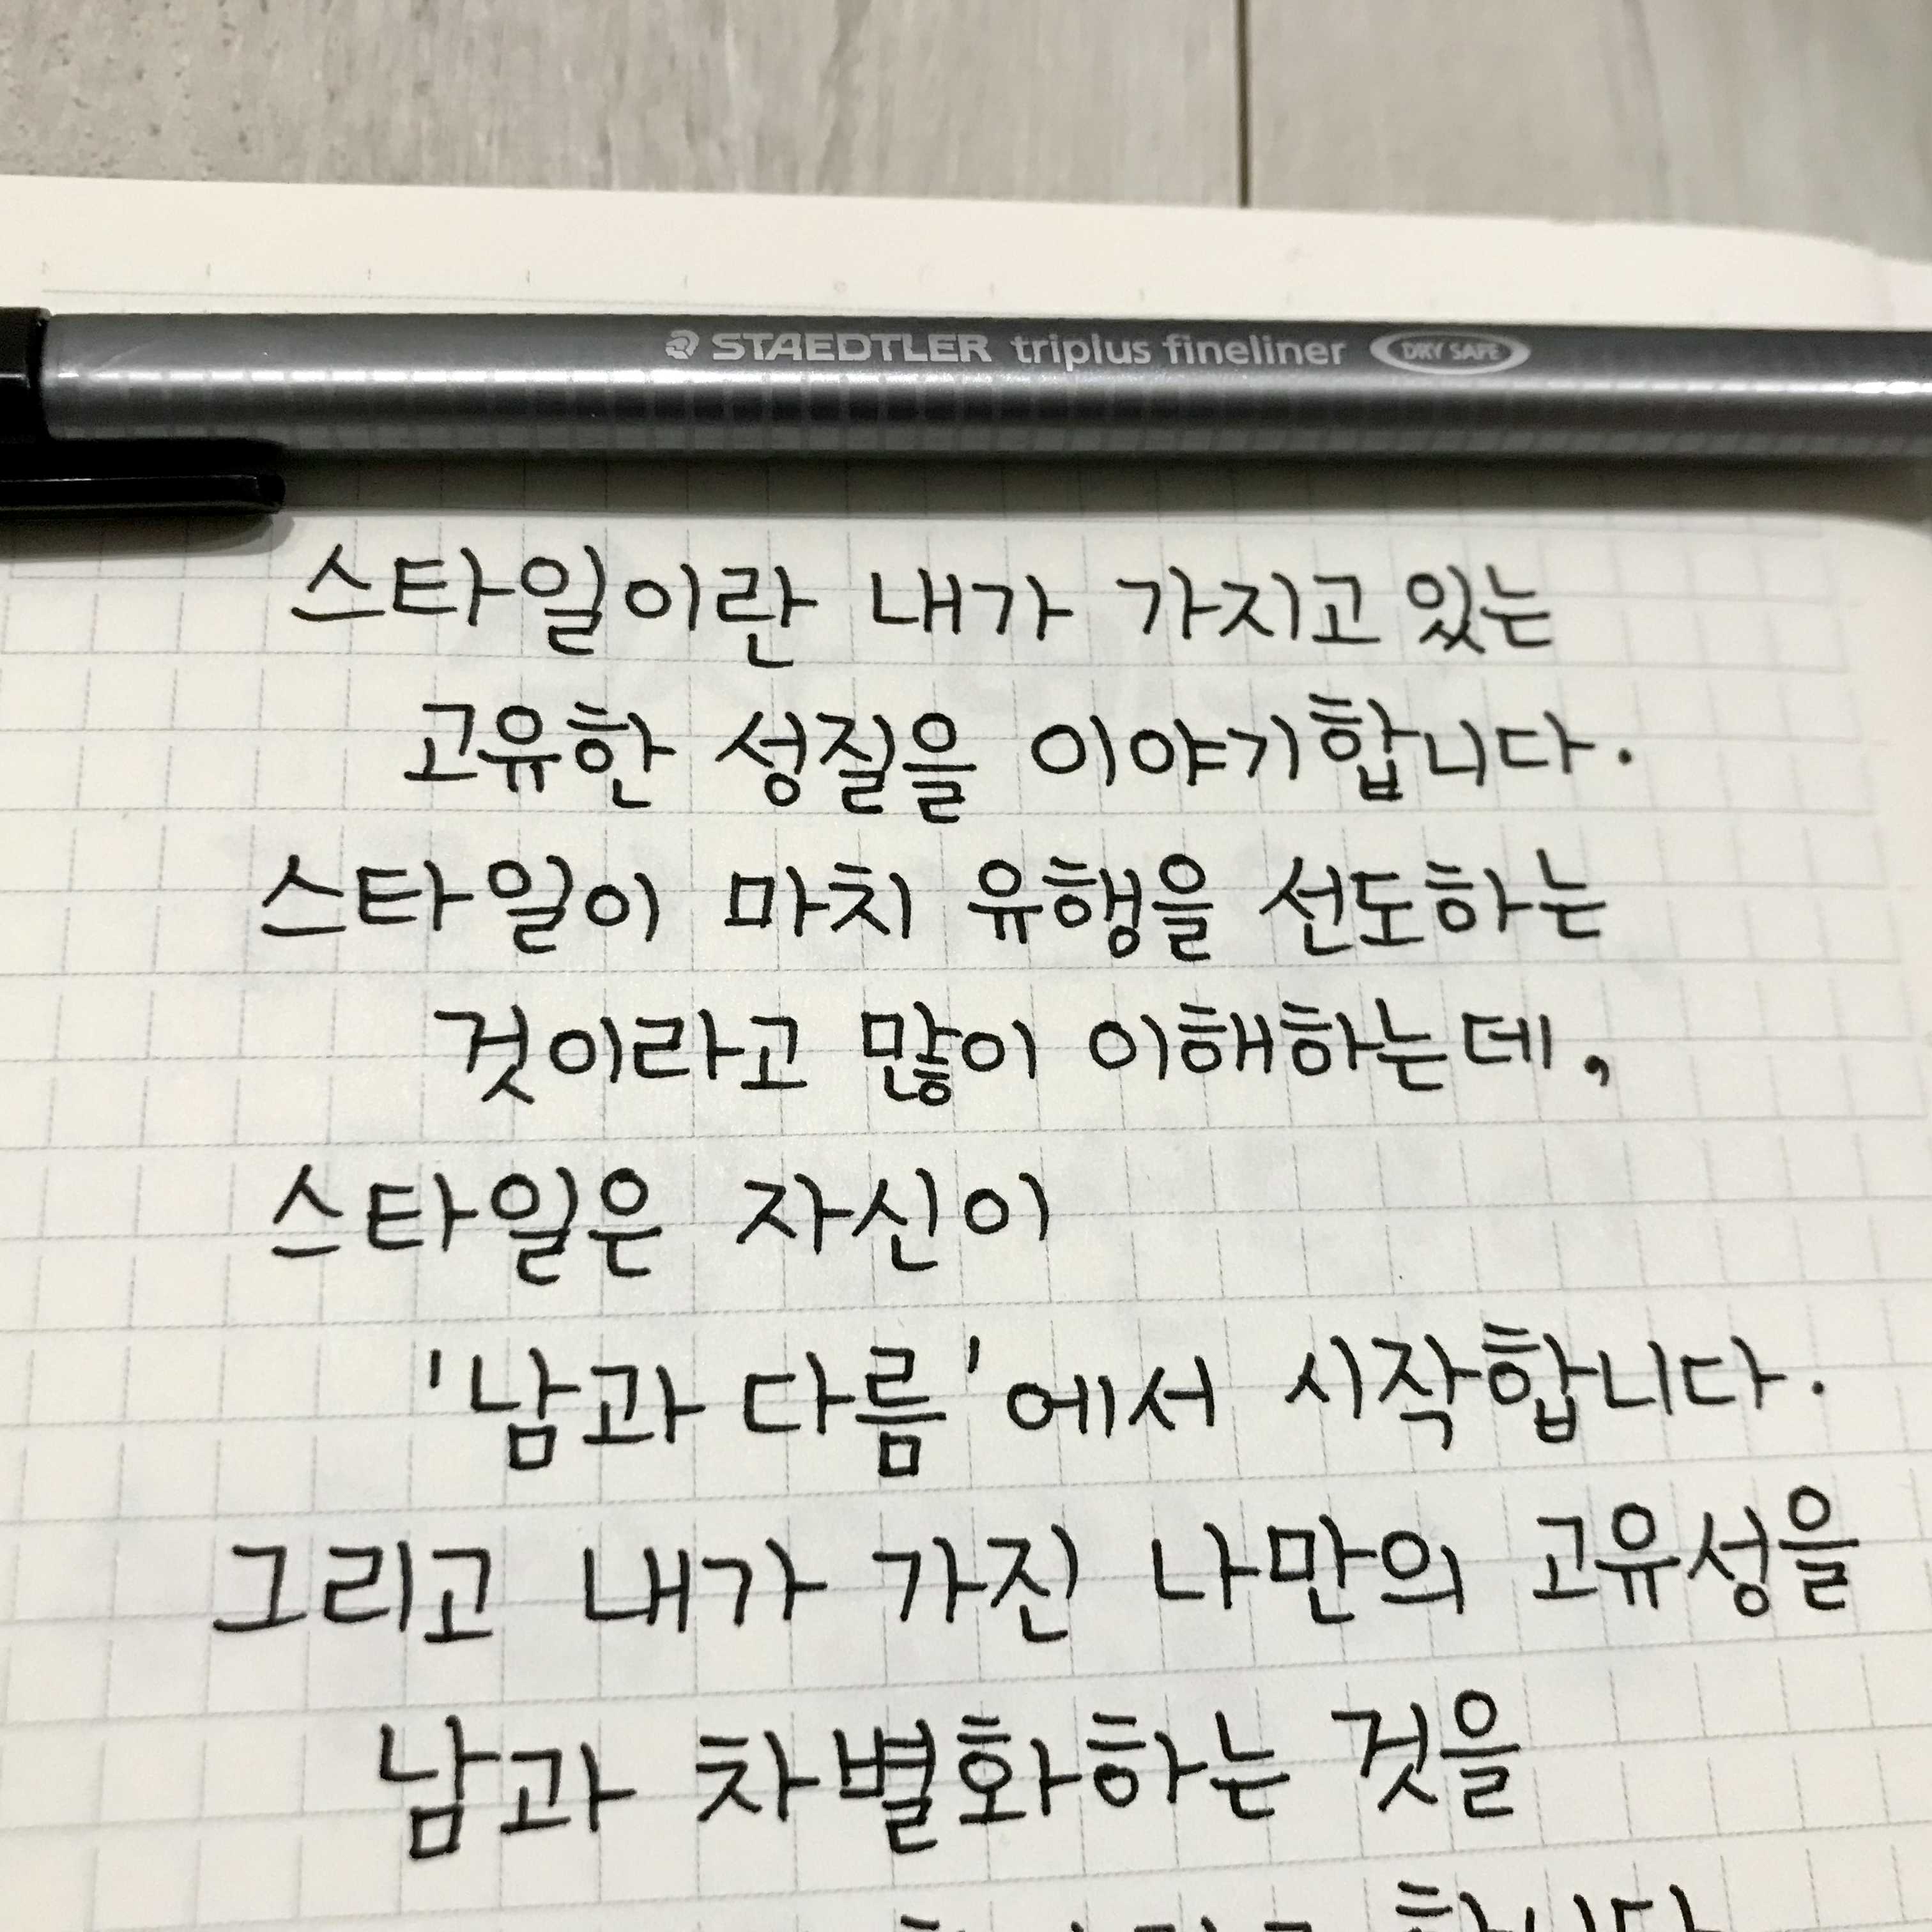 STAEDTLER triplus fineliner DRY SAFE
스타일이란 내가 가지고 있는
고유한 성질을 이야기합니다.
스타일이 마치 유행을 선도하는
것이라고 많이 이해하는데,
스타일은 자신이
'남과 다름'에서 시작합니다.
그리고 내가 가진 나만의 고유성을
남과 차별화하는 것을